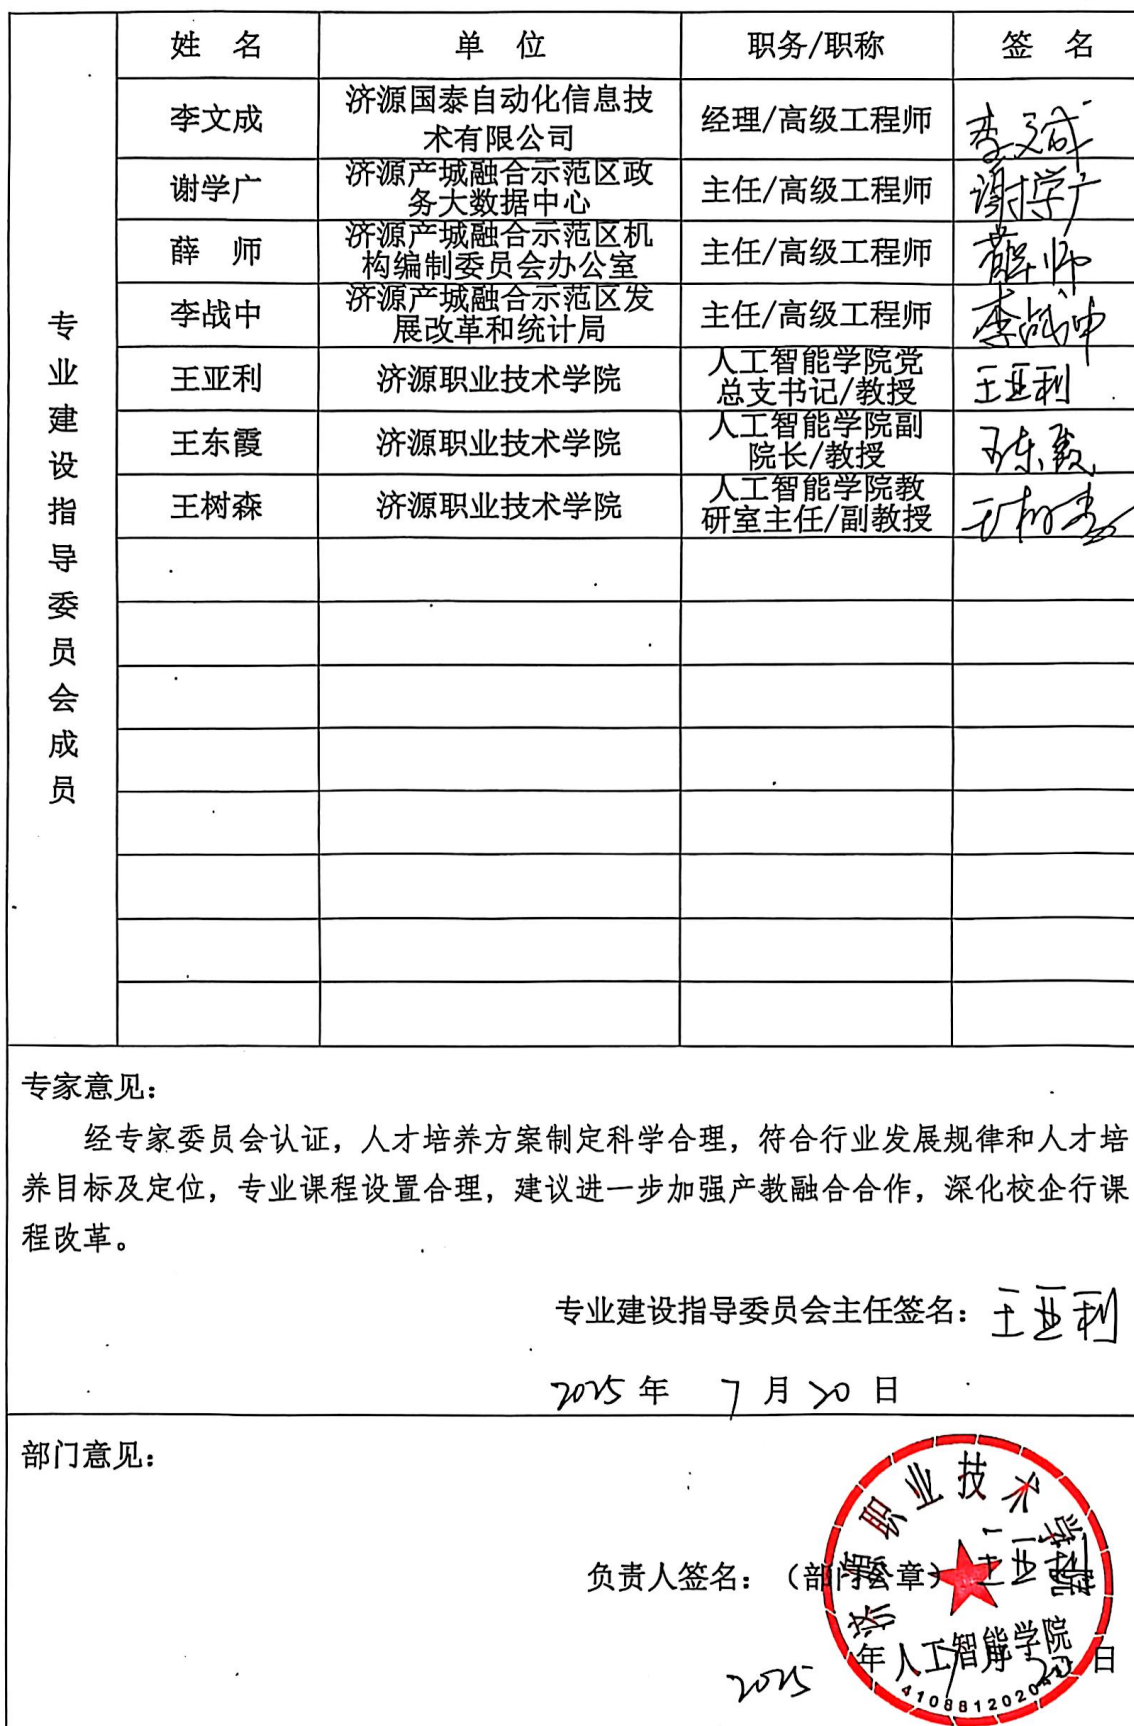 专业建设指导委员会成员
姓 名 单 位 职务/职称 签 名
李文成 济源国泰自动化信息技术有限公司 经理/高级工程师 李文成
谢学广 济源产城融合示范区政务大数据中心 主任/高级工程师 谢学广
薛 师 济源产城融合示范区机构编制委员会办公室 主任/高级工程师 薛师
李战中 济源产城融合示范区发展改革和统计局 主任/高级工程师 李战中
王亚利 济源职业技术学院 人工智能学院党总支书记/教授 王亚利
王东霞 济源职业技术学院 人工智能学院副院长/教授 王东霞
王树森 济源职业技术学院 人工智能学院教研室主任/副教授 王树森
专家意见：
经专家委员会认证，人才培养方案制定科学合理，符合行业发展规律和人才培
养目标及定位，专业课程设置合理，建议进一步加强产教融合合作，深化校企行课
程改革。
专业建设指导委员会主任签名：王亚利
2025 年 7 月 20 日
部门意见：
负责人签名：（部门公章）王亚利
2025 年 7 月 20 日
济源职业技术学院
人工智能学院